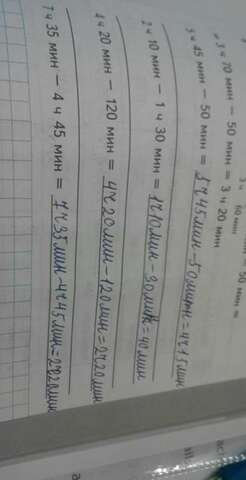 60 мин
50 мин =
3 ч 70 мин − 50 мин = 3 ч 20 мин
5 ч 45 мин − 50 мин = 5ч45мин−50мин=4ч15мин
2 ч 10 мин − 1 ч 30 мин = 1ч10мин−30мин=40мин
4 ч 20 мин − 120 мин = 4ч20мин−120мин=2ч20мин
7 ч 35 мин − 4 ч 45 мин = 7ч35мин−4ч45мин=2ч20мин